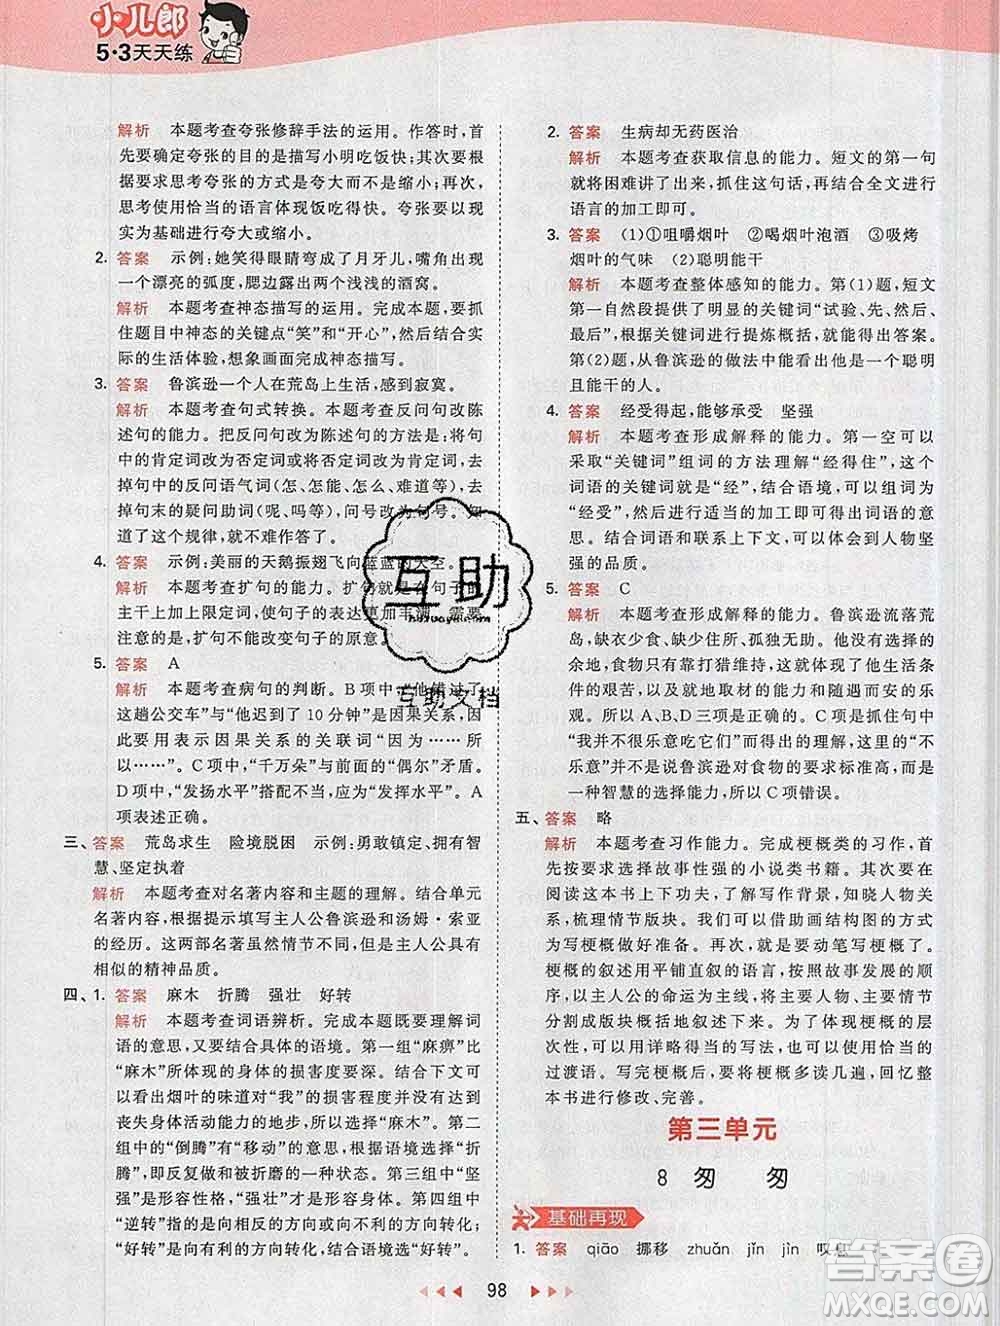 小儿郎
5·3天天练
解析 本题考查夸张修辞手法的运用。作答时，首
先要确定夸张的目的是描写小明吃饭快；其次，根
据要求思考夸张的方式是夸大而不是缩小；再次，
思考使用恰当的语言体现饭吃得快。夸张要以现
实为基础进行夸大或缩小。
2. 答案 示例：她笑得眼睛弯成了月牙儿，嘴角呈现
一个漂亮的弧度，腮边露出两个浅浅的酒窝。
解析 本题考查神态描写的运用。完成本题，要抓
住题目中神态的关键点“笑”和“开心”，然后结合实
际的生活体验，想象画面完成神态描写。
3. 答案 鲁滨逊一个人在荒岛上生活，感到寂寞。
解析 本题考查句式转换。本题考查反问句改陈
述句的能力。把反问句改为陈述句的方法是：将句
中的肯定词改为否定词或将否定词改为肯定词，
去掉句中的反问语气词（怎、怎能、怎么、难道等），去
掉句末的疑问助词（呢、吗等），问号改为句号。知
道了这个规律，就不难作答了。
4. 答案 示例：美丽的天鹅振翅飞向蓝蓝的天空。
解析 本题考查扩句的能力。扩句就是在句子的
主干上加上限定词，使句子的表达更加丰满。需要
注意的是，扩句不能改变句子的原意。
5. 答案 A
解析 本题考查病句的判断。B项中“他错过了
这趟公交车”与“他迟到了10分钟”是因果关系，因
此要用表示因果关系的关联词“因为……所
以……”。C项中，“千万朵”与前面的“偶尔”矛盾。
D项中，“发扬水平”搭配不当，应为“发挥水平”。A
项表述正确。
三、答案 荒岛求生 险境脱困 示例：勇敢镇定、拥有智
慧、坚定执着
解析 本题考查对名著内容和主题的理解。结合单元
名著内容，根据提示填写主人公鲁滨逊和汤姆·索亚
的经历。这两部名著虽然情节不同，但是主人公具有
相似的精神品质。
四、1. 答案 麻木 折腾 强壮 好转
解析 本题考查词语辨析。完成本题既要理解词
语的意思，又要结合具体的语境。第一组“麻痹”比
“麻木”所体现的身体的损害度要高，结合语境可
以看出烟叶的味道对鲁滨逊的损害程度并没有达到
丧失身体活动能力的地步，所以选择“麻木”。第二
组中的“倒腾”有“移动”的意思，根据语境选择“折
腾”，即反复做和被折磨的一种状态。第三组中“坚
强”是形容性格，“强壮”才是形容身体。第四组中
“逆转”指的是向相反的方向或向不利的方向转化；
“好转”指的是向有利的方向转化，结合语境选“好转”。
2. 答案 生病却无药医治
解析 本题考查获取信息的能力。短文的第一句
就将困难讲了出来，抓住这句话，再结合全文进行
语言的加工即可。
3. 答案 （1）①咀嚼烟叶 ②喝烟叶泡酒 ③吸烤
烟叶的气味 （2）聪明能干
解析 本题考查整体感知的能力。第（1）题，短文
第一自然段提供了明显的关键词“试验、先、然后、
最后”，根据关键词进行提炼概括，即可得出答案。
第（2）题，从鲁滨逊的做法中能看出他是一个聪明
且能干的人。
4. 答案 经受得起，能够承受 坚强
解析 本题考查形成解释的能力。第一空可以
采取“关键词”组词的方法理解“经得住”，这个
词语的关键词就是“经”，结合语境，可以组词为
“经受”，然后适当的加工即可得出词语的意思。
第二空，结合词语和联系上下文，可以体会人物坚
强的品质。
5. 答案 C
解析 本题考查形成解释的能力。鲁滨逊流落荒
岛，缺衣少食、缺少居所、孤独无助。他没有选择的
余地，食物只能靠打猎获得，体现了他生活条件
的艰苦，以及对战胜困难、改变现状的努力。
所以，A、B、D三项是正确的。C项，通过抓住句中
“我并不很乐意吃它们”而得出的理解，这里的“不
乐意”想要突出的是鲁滨逊对食物的要求标准高，而
一种智慧的选择能力。C项错误。
五、答案 略
解析 本题考查习作能力。完成梗概类的习作，首
先按要求选择故事性强的小说类书籍。其次要在
阅读这本书上下功夫，了解写作背景，知晓人物关
系，梳理情节版块。我们可以借助画结构图的方式
为写梗概做好准备。再次，就是要动笔写梗概了，
梗概的叙述用平铺直叙的语言，按照故事发展的顺
序，以主人公的命运为主线，将主要人物、主要情节
分割成版块概括地叙述下来。为了体现梗概的层
次性，可以用详略得当的写法，也可以使用恰当的
过渡语句。写完梗概，要把梗概多读几遍，回忆整
本书进行修改、完善。
第三单元
8 匆 匆
基础再现
1. 答案 qiāo 挪移 zhuǎn jǐn jìn 叹息
98
互助
互助文档
答案圈
MXQE.COM